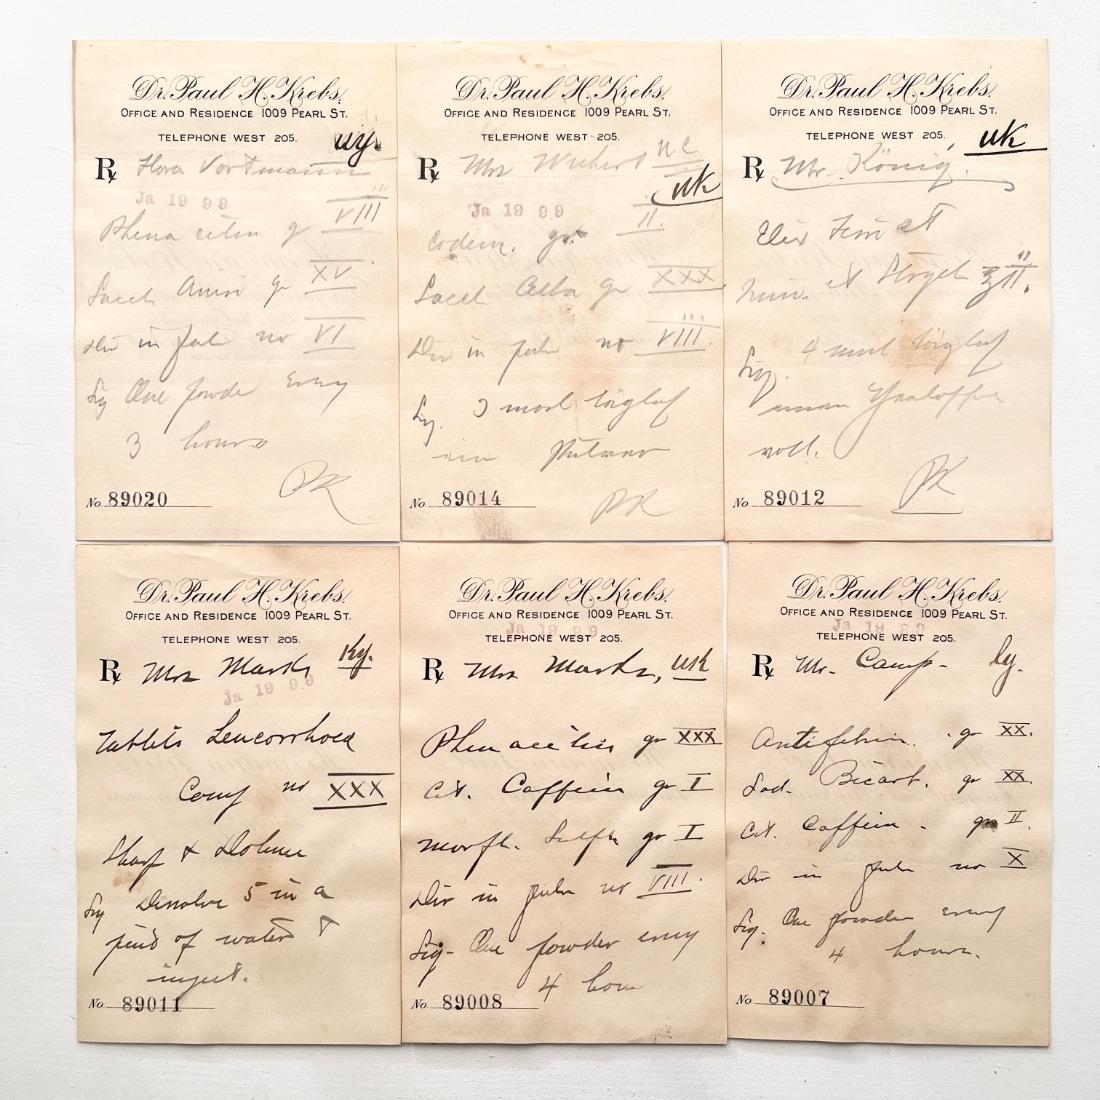 Dr. Paul H. Krebs,
OFFICE AND RESIDENCE 1009 PEARL ST.
TELEPHONE WEST 205.
Rx Flora Vortmann
Ja 19 99
Phenacetin gr VIII
Sacch gr XV
Div in pulv no VI
Sig One powder every
3 hours
PK
No. 89020
Dr. Paul H. Krebs,
OFFICE AND RESIDENCE 1009 PEARL ST.
TELEPHONE WEST 205.
Rx Mrs
Ja 19 99
Codein. gr. II.
Sacch Alba gr XXX
Div in pulv no VIII.
Sig. 3 mal täglich
ein Pulver
PK
No. 89014
Dr. Paul H. Krebs,
OFFICE AND RESIDENCE 1009 PEARL ST.
TELEPHONE WEST 205.
Rx Mr. König.
Elix Ferri et
et II.
Sig. 4 mal täglich
einen
voll.
PK
No. 89012
Dr. Paul H. Krebs,
OFFICE AND RESIDENCE 1009 PEARL ST.
TELEPHONE WEST 205.
Rx Mrs Marks
Ja 19 99
Tablets Leucorrhoea
Comp no XXX
Sharp & Dohme
Sig Dissolve 5 in a
pint of water &
inject.
No. 89011
Dr. Paul H. Krebs,
OFFICE AND RESIDENCE 1009 PEARL ST.
Ja 19 99
TELEPHONE WEST 205.
Rx Mrs Marks,
Phenacetin gr XXX
Cit. Caffein gr I
Morph. Sulph gr I
Div in pulv no VIII.
Sig- One powder every
4 hour
No. 89008
Dr. Paul H. Krebs,
OFFICE AND RESIDENCE 1009 PEARL ST.
Ja 19 99
TELEPHONE WEST 205.
Rx Mr. Camp-
Antifebrin. gr XX.
Sod. Bicarb. gr XX.
Cit. Caffein. gr II.
Div in pulv no X
Sig. One powder every
4 hours.
No. 89007